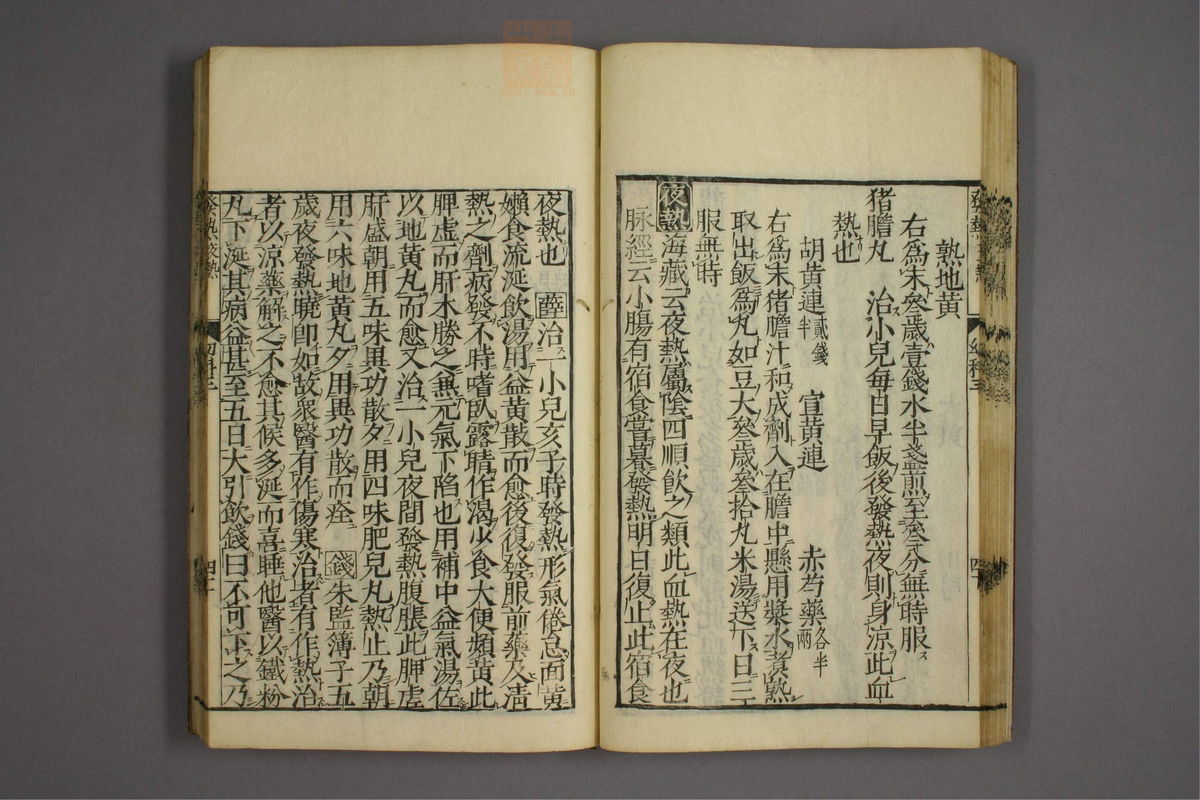 熟地黄
右爲末叄歳壹錢水半盞煎至叄分無時服
猪膽丸　治小兒毎日早飯後發熱夜則身凉此血
熱也
胡黄連貳錢半　宣黄連　赤芍藥各半兩
右爲末猪膽汁和成劑入在膽中懸用漿水煮熟
取出飯爲丸如豆大叄歳叄拾丸米湯送下日三
服無時
夜熱海藏云夜熱屬陰四順飲之類此血熱在夜也
脉經云小腸有宿食嘗暮發熱明日復止此宿食
夜熱也　薛治一小兒亥子時發熱形氣倦怠面黄
懶食流涎飲湯用益黄散而愈後復發服前藥及清
熱之劑病發不時嗜臥露睛作渴少食大便頻黄此
脾虚而肝木勝之無元氣下陷也用補中益氣湯佐
以地黄丸而愈又治一小兒夜間發熱腹脹此脾虚
肝盛朝用五味異功散夕用四味肥兒丸熱止乃朝
用六味地黄丸夕用異功散而痊　錢朱監簿子五
歳夜發熱曉卽如故衆醫有作傷寒治者有作熱治
者以凉藥解之不愈其候多涎而喜睡他醫以鐵粉
丸下涎其病益甚至五日大引飲錢曰不可下之乃
發熱
幼科三
四十